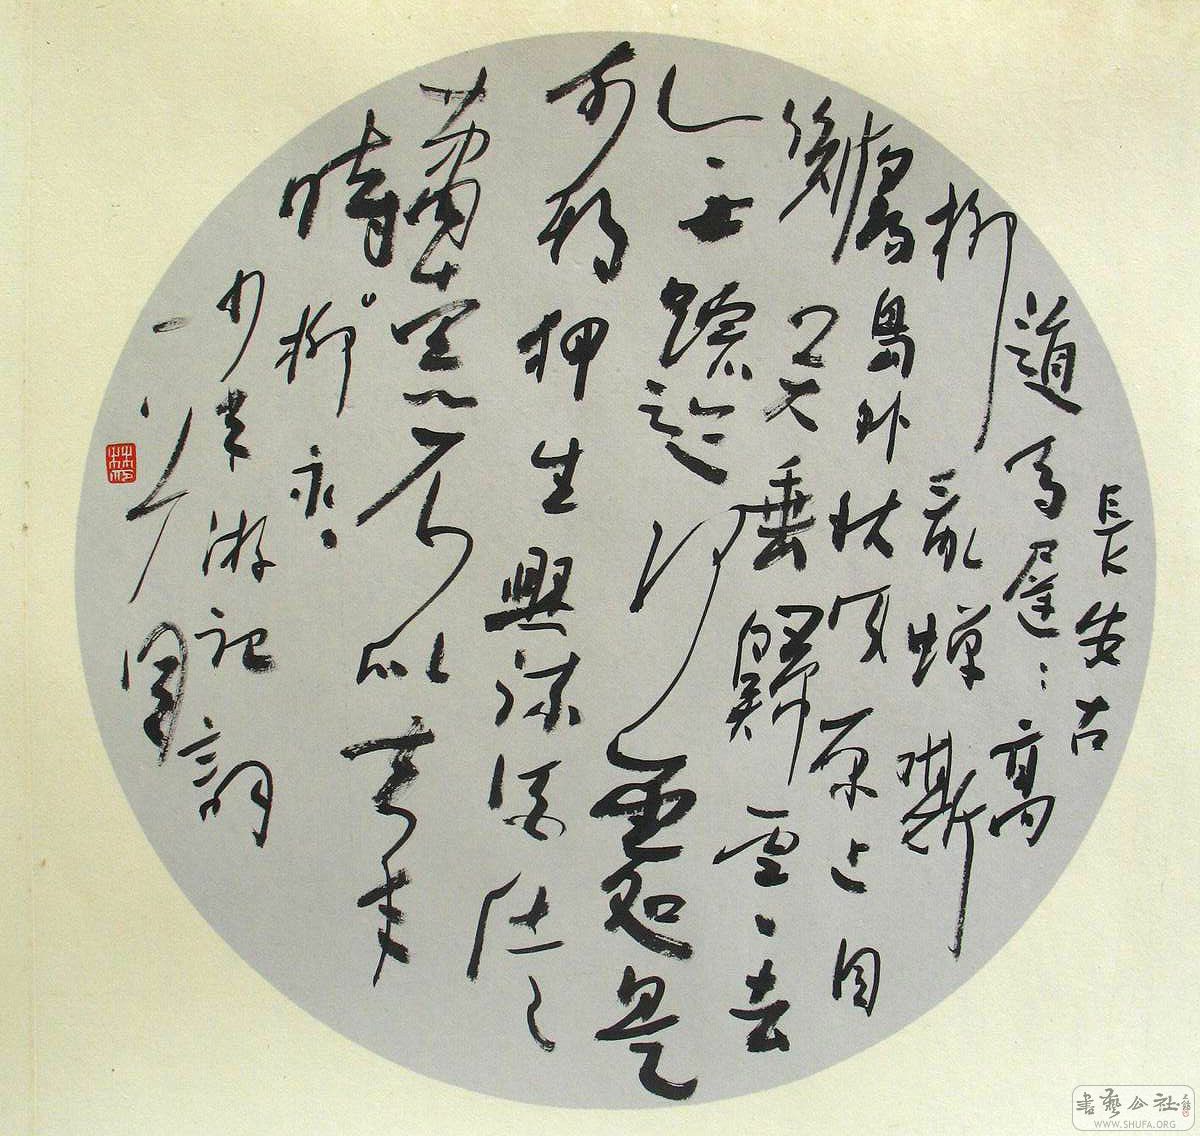 長安古
道馬遲〻高
柳亂蟬嘶
陽鳥外秋風原上目
斷四天垂歸雲一去
無蹤迹何處是
前期狎生興疎酒徒
蕭索不似去年
時柳永
少年游記詞